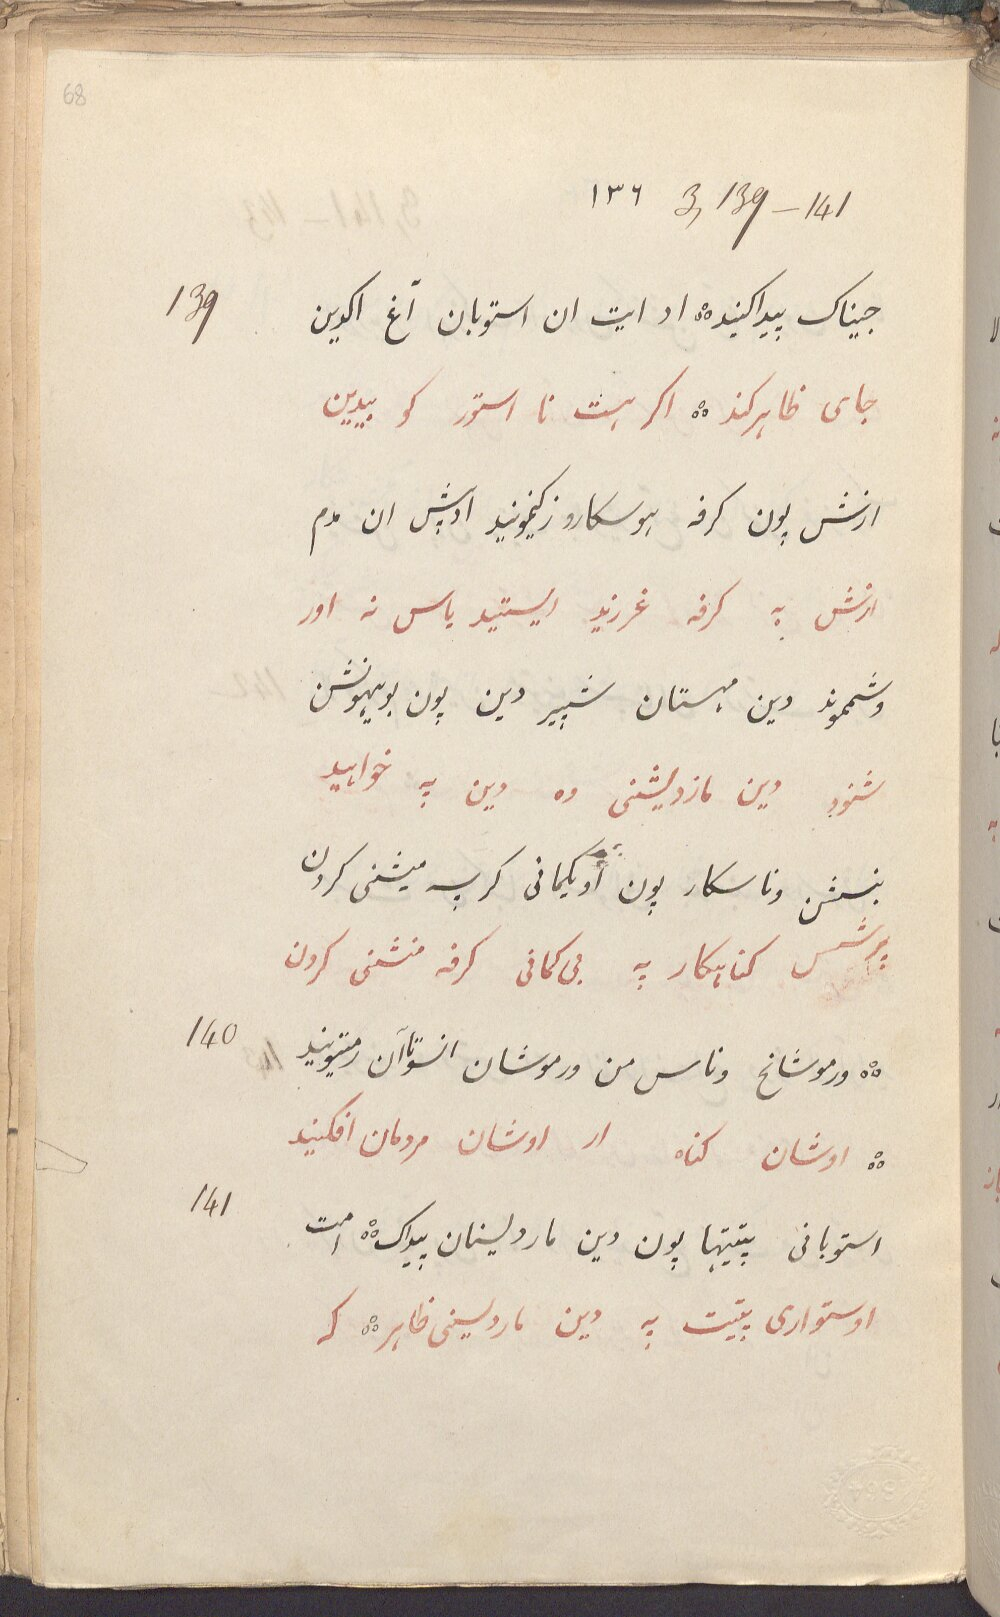 68
١٣٦ 3, 139–141
جیناک پیدا کنید ۞ اد ایت ان استوبان آغ اکدین 139
جای ظاهر کند ۞ اکر هست نا استور کو بیدین
ازنش پون کرفه هوسکارو زکیمونید ادپش ان مدم
ازنش به کرفه غرزید ایستید یاس نه اور
وشممونید دین مهستان شپیر دین پون بویهونشن
شنود دین مازدیشنی وه دین به خواهید
وناسکار پون اویکمانی کرپه میشنی کردن
پرشس کناهکار به بی کمانی کرفه منشنی کردن
۞ ورموشانح وناس من ورموشان انسوتاآن رمیتونید 140
۞ اوشان کناه از اوشان مردمان افکنید
استوبانی پتیتیها پون دین ماردلیسنان پیداک ۞ امت 141
اوستواری پتیت به دین ماردلیسنی ظاهر ۞ که